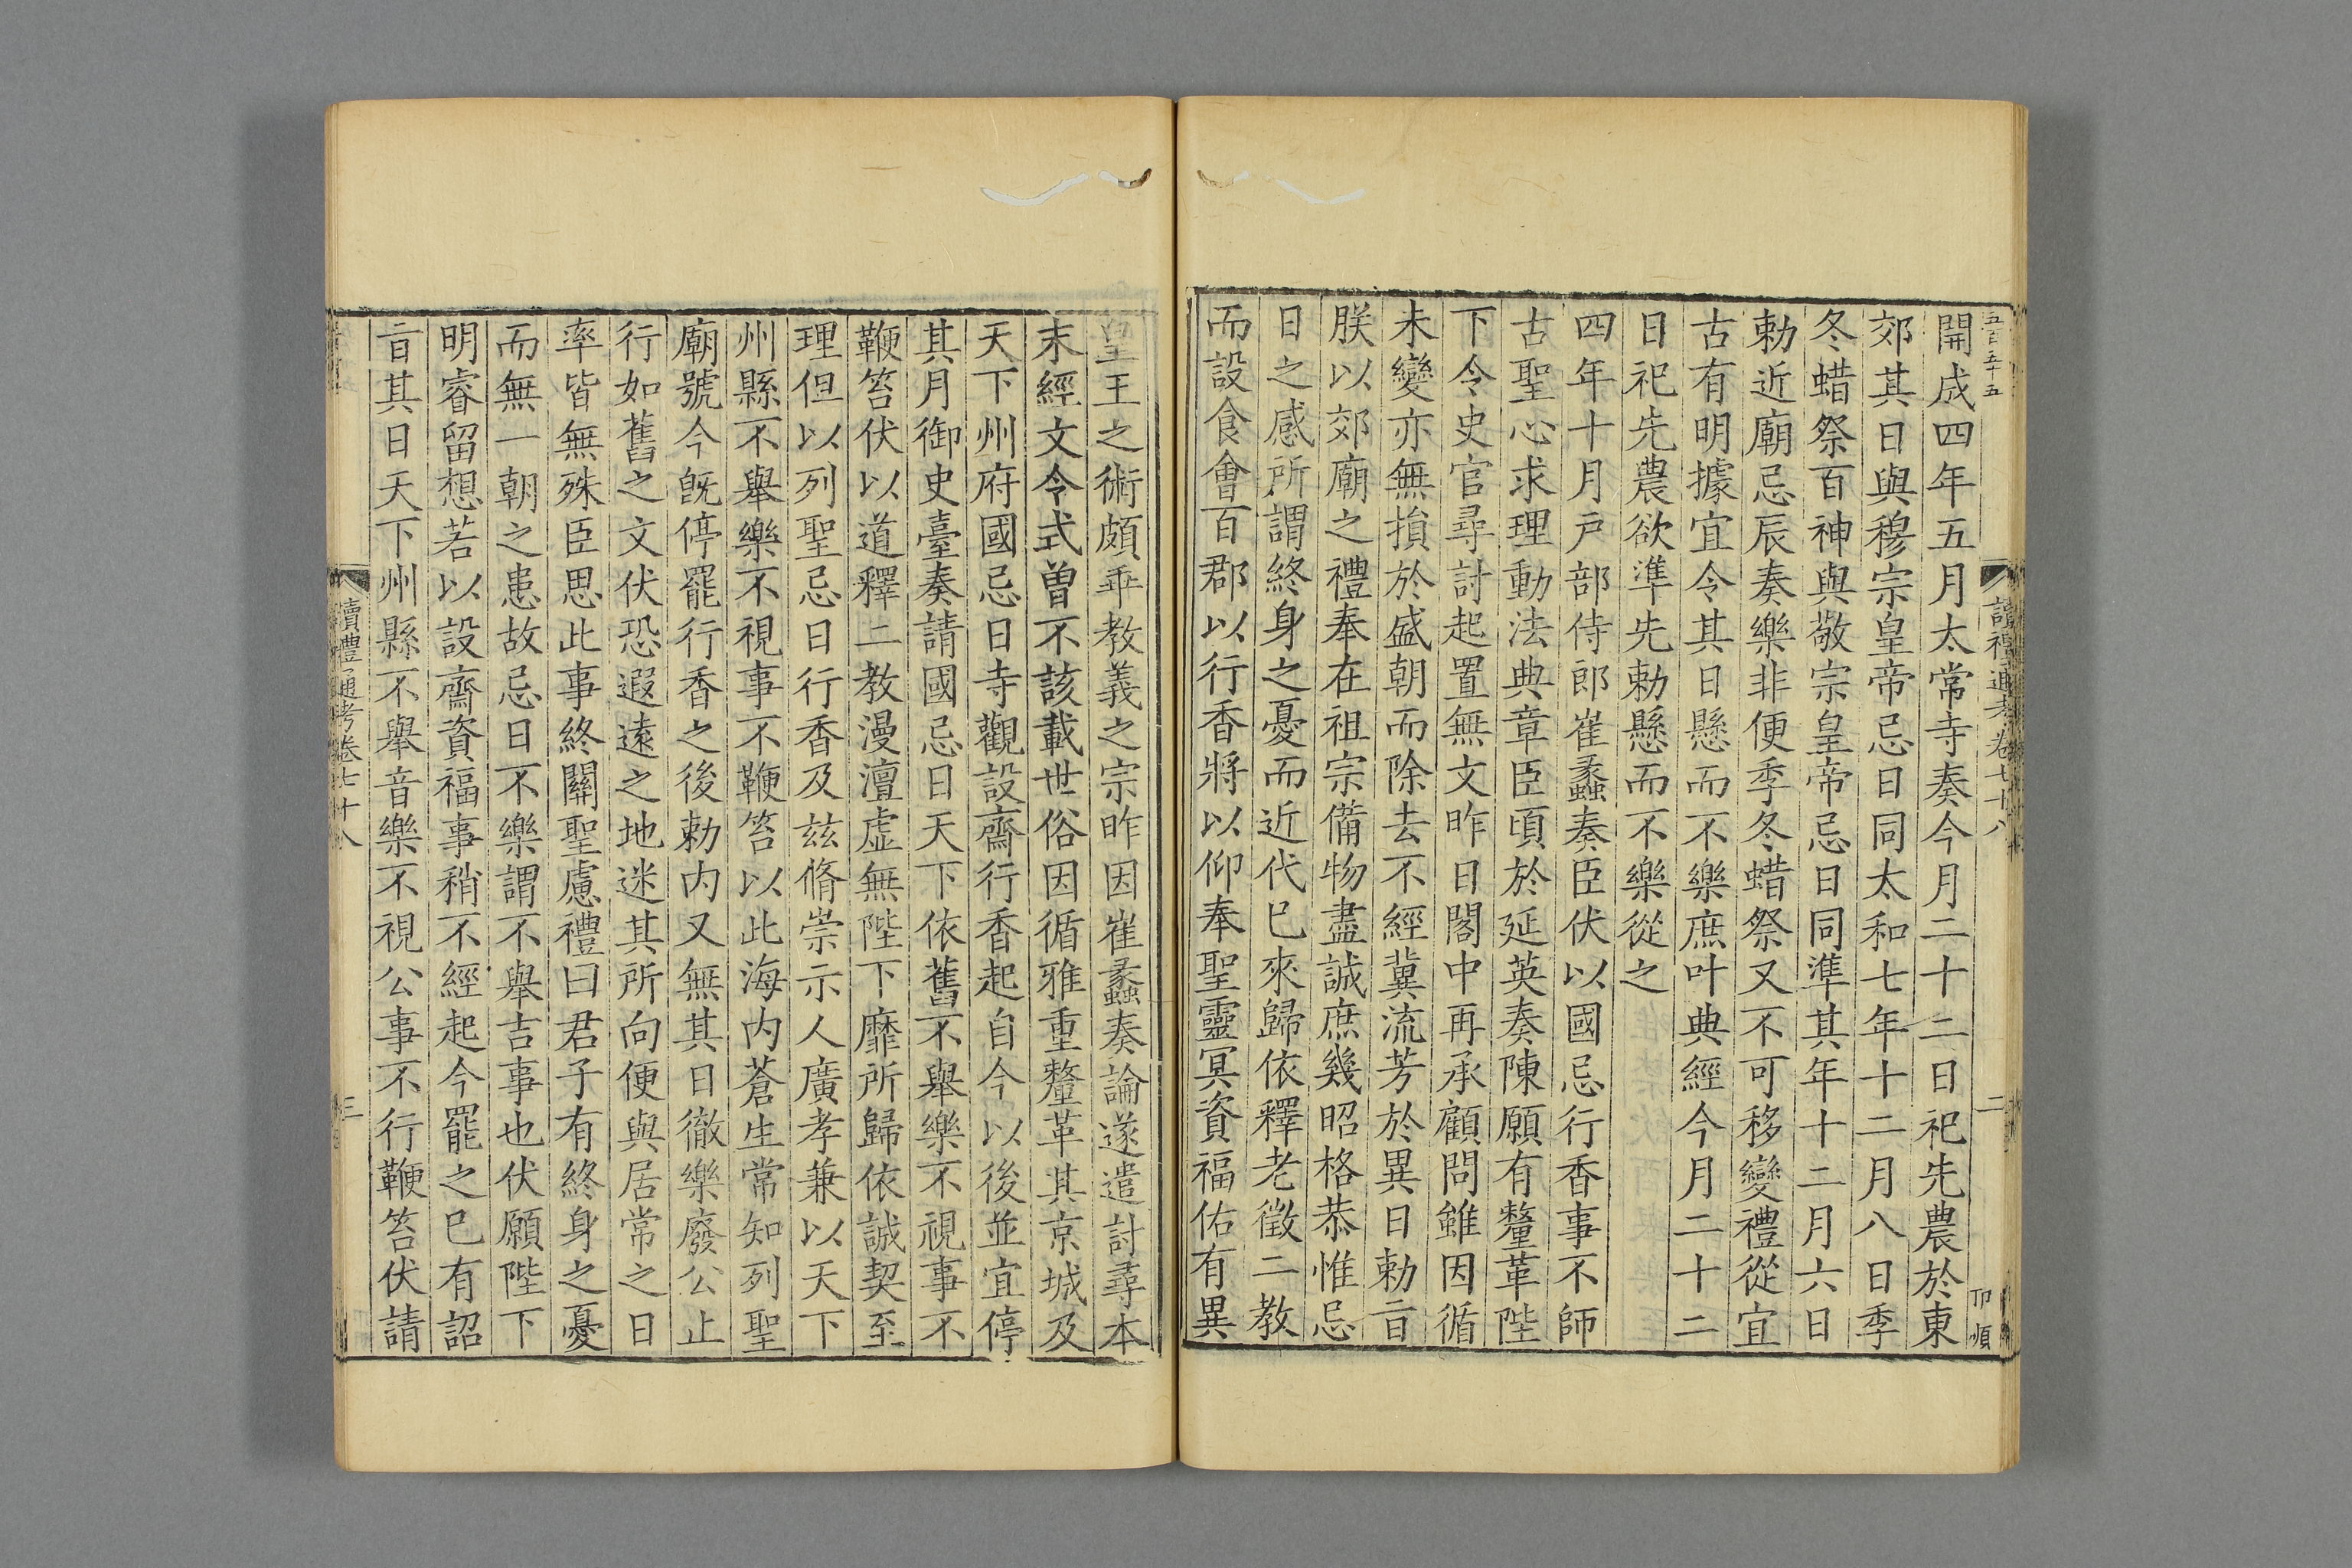 五百五十五
讀禮通考卷七十八
二
開成四年五月太常寺奏今月二十二日祀先農於東
郊其日與穆宗皇帝忌日同太和七年十二月八日季
冬蜡祭百神與敬宗皇帝忌日同準其年十二月六日
勅近廟忌辰奏樂非便季冬蜡祭又不可移變禮從宜
古有明據宜令其日懸而不樂庶叶典經今月二十二
日祀先農欲準先勅懸而不樂從之
四年十月戸部侍郎崔蠡奏臣伏以國忌行香事不師
古聖心求理動法典章臣頃於延英奏陳願有釐革陛
下令史官尋討起置無文昨日閣中再承顧問雖因循
未變亦無損於盛朝而除去不經冀流芳於異日勅㫖
朕以郊廟之禮奉在祖宗備物盡誠庶幾昭格恭惟忌
日之感所謂終身之憂而近代已來歸依釋老徵二教
而設食會百郡以行香將以仰奉聖靈冥資福佑有異
皇王之術頗乖教義之宗昨因崔蠡奏論遂遣討尋本
末經文令式曽不該載世俗因循雅重釐革其京城及
天下州府國忌日寺觀設齋行香起自今以後並宜停
其月御史臺奏請國忌日天下依舊不舉樂不視事不
鞭笞伏以道釋二教漫澶虚無陛下靡所歸依誠契至
理但以列聖忌日行香及兹脩崇示人廣孝兼以天下
州縣不舉樂不視事不鞭笞以此海内蒼生常知列聖
廟號今旣停罷行香之後勅内又無其日徹樂廢公止
行如舊之文伏恐遐遠之地迷其所向便與居常之日
率皆無殊臣思此事終關聖慮禮曰君子有終身之憂
而無一朝之患故忌日不樂謂不舉吉事也伏願陛下
明睿留想若以設齋資福事稍不經起今罷之已有詔
㫖其日天下州縣不舉音樂不視公事不行鞭笞伏請
讀禮通考卷七十八
三